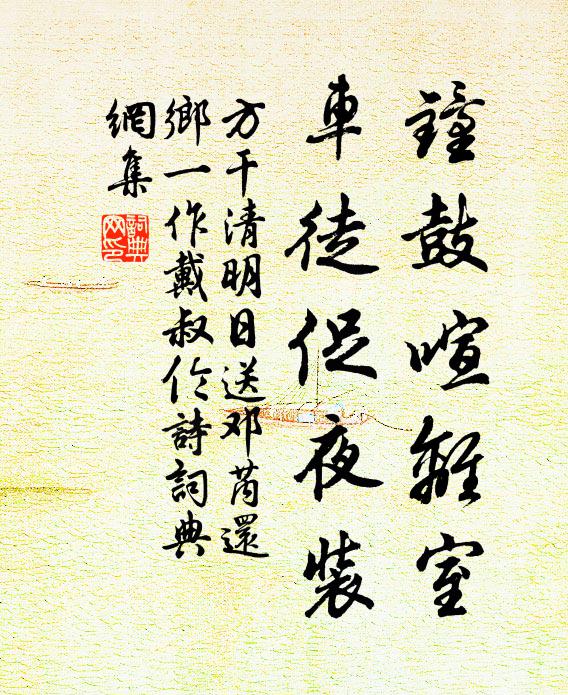 鐘鼓喧離室
車徒促夜裝
方干清明日送邓芮還
鄉一作戴叔伦詩詞典
網集
詞典
网印